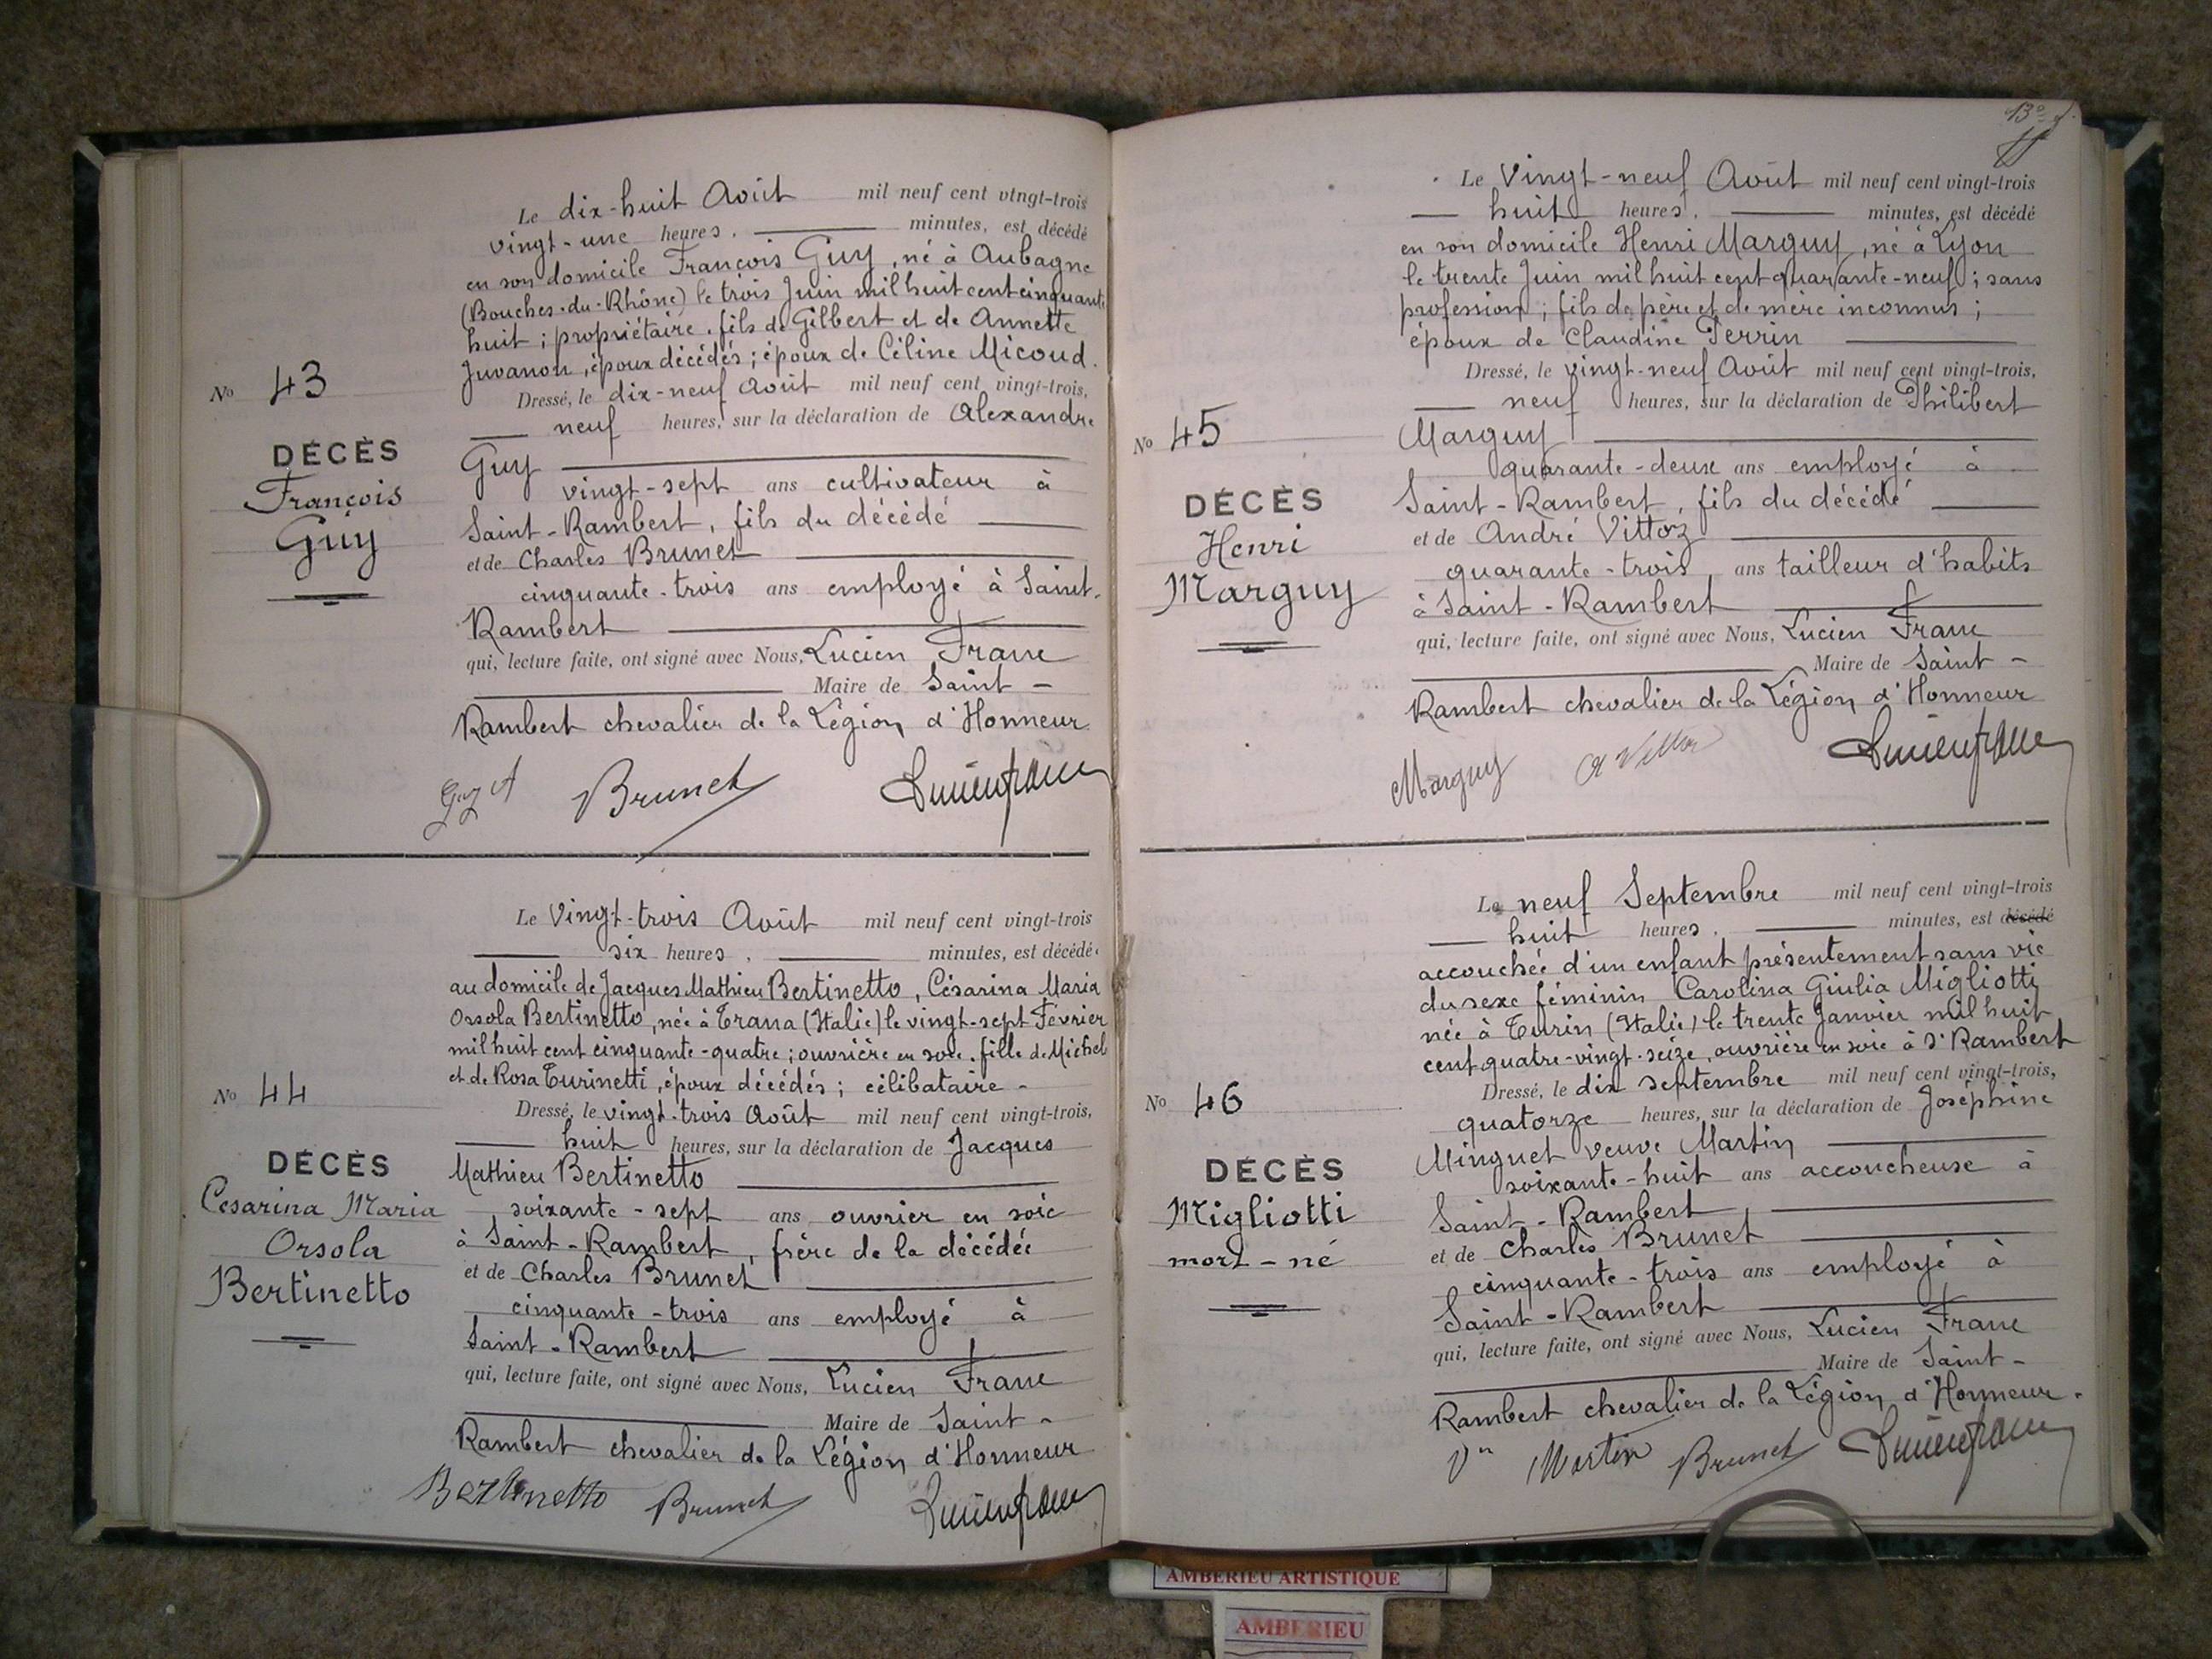 Le dix-huit Août mil neuf cent vingt-trois
vingt-une heures. minutes, est décédé
en son domicile François Guy, né à Aubagne
(Bouches-du-Rhône) le trois Juin mil huit cent cinquante
huit ; propriétaire. fils de Gilbert et de Annette
Juvanon, époux décédés ; époux de Céline Micoud.
No 43
Dressé, le dix-neuf Août mil neuf cent vingt-trois,
neuf heures, sur la déclaration de Alexandre
DÉCÈS
François
Guy
Guy
vingt-sept ans cultivateur à
Saint-Rambert, fils du décédé
et de Charles Brunet
cinquante-trois ans employé à Saint-
Rambert
qui, lecture faite, ont signé avec Nous, Lucien Franc
Maire de Saint-
Rambert chevalier de la Légion d'Honneur
Guy A Brunet Lucien Franc
Le Vingt-trois Août mil neuf cent vingt-trois
six heures, minutes, est décédé
au domicile de Jacques Mathieu Bertinetto, Césarina Maria
Orsola Bertinetto, née à Trana (Italie) le vingt-sept Février
mil huit cent cinquante-quatre ; ouvrière en soie. fille de Michel
et de Rosa Turinetti, époux décédés ; célibataire -
No 44
Dressé, le vingt-trois Août mil neuf cent vingt-trois,
huit heures, sur la déclaration de Jacques
DÉCÈS
Cesarina Maria
Orsola
Bertinetto
Mathieu Bertinetto
soixante-sept ans ouvrier en soie
à Saint-Rambert, frère de la décédée
et de Charles Brunet
cinquante-trois ans employé à
Saint-Rambert
qui, lecture faite, ont signé avec Nous, Lucien Franc
Maire de Saint-
Rambert chevalier de la Légion d'Honneur
Bertinetto Brunet Lucien Franc
13e f.
Le Vingt-neuf Août mil neuf cent vingt-trois
huit heures. minutes, est décédé
en son domicile Henri Marguy, né à Lyon
le trente Juin mil huit cent quarante-neuf ; sans
profession ; fils de père et de mère inconnus ;
époux de Claudine Perrin
Dressé, le vingt-neuf Août mil neuf cent vingt-trois,
neuf heures, sur la déclaration de Philibert
No 45
DÉCÈS
Henri
Marguy
Marguy
quarante-deux ans employé à
Saint-Rambert, fils du décédé
et de André Vittoz
quarante-trois ans tailleur d'habits
à Saint-Rambert
qui, lecture faite, ont signé avec Nous, Lucien Franc
Maire de Saint-
Rambert chevalier de la Légion d'Honneur
Marguy Lucien Franc
Le neuf Septembre mil neuf cent vingt-trois
huit heures. minutes, est décédé
accouchée d'un enfant présentement sans vie
du sexe féminin Carolina Giulia Migliotti
née à Turin (Italie) le trente Janvier mil huit
cent quatre-vingt-seize, ouvrière en soie à St Rambert
Dressé, le dix septembre mil neuf cent vingt-trois,
quatorze heures, sur la déclaration de Joséphine
No 46
DÉCÈS
Migliotti
mort-né
Minguet veuve Martin
soixante-huit ans accoucheuse à
Saint-Rambert
et de Charles Brunet
cinquante-trois ans employé à
Saint-Rambert
qui, lecture faite, ont signé avec Nous, Lucien Franc
Maire de Saint-
Rambert chevalier de la Légion d'Honneur.
Martin Brunet Lucien Franc
AMBERIEU ARTISTIQUE
AMBERIEU